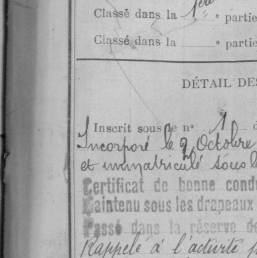 Classé dans la 1ère ° partie
Classé dans la ° partie
DÉTAIL DES
Inscrit sous le n° 1 d
Incorporé le 9 Octobre
et immatriculé sous l
Certificat de bonne cond
Maintenu sous les drapeaux
Passé dans la réserve de
Rappelé à l'activité p